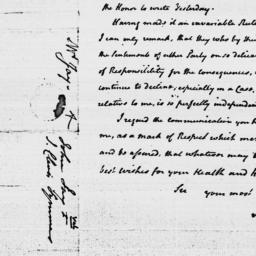 the Honor to write Yesterday.
Having made it an invariable Rule
I can only remark, that they who by the
the Sentiments of either Party on so delica
of Responsibility for the consequences,
continue to decline, especially in a Case
relative to me, is so perfectly independen
I regard the communication you h
me, as a mark of Respect which me
and be assured, that whatever may b
best wishes for your Health and H
your most
Mr Jay.
John Jay
J. Cleves Symmes